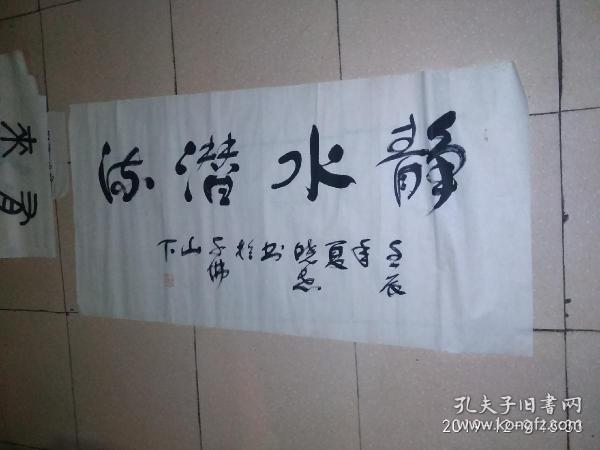 静水潜流
壬辰年夏晓书於千佛山下
来
孔夫子旧书网
www.kongfz.com